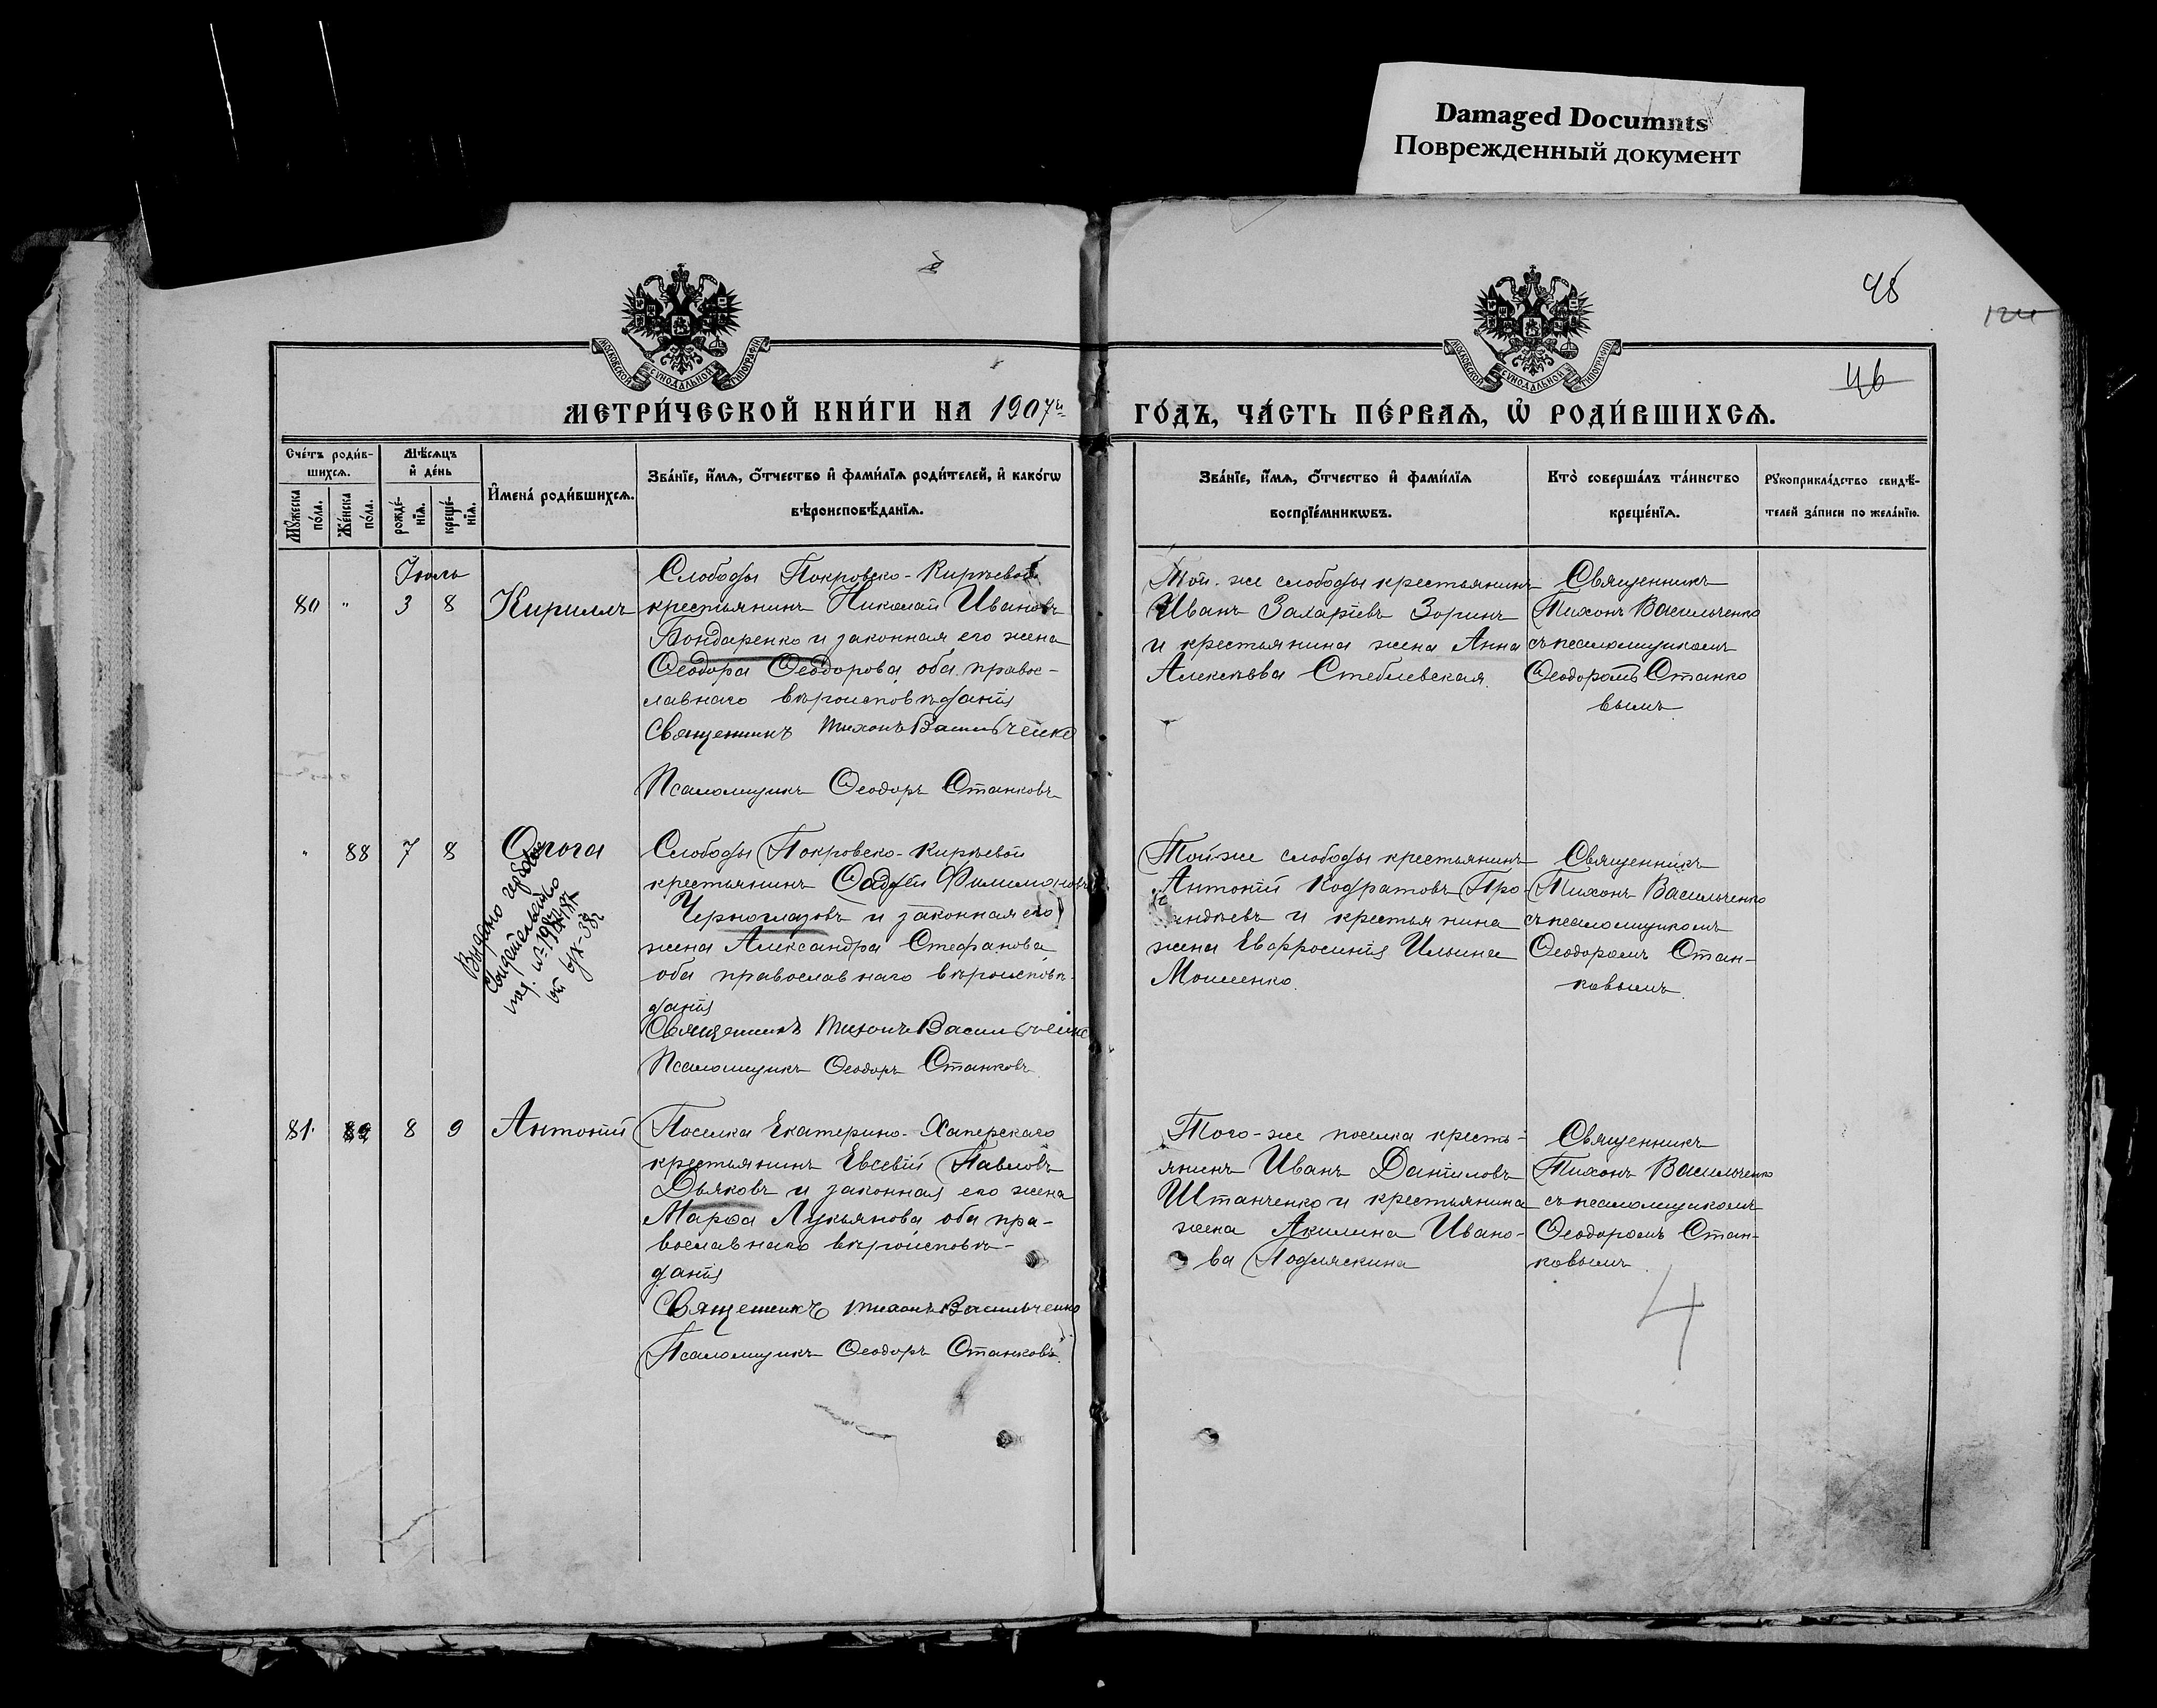 Damaged Documnts
Поврежденный документ
45
46
МОСКОВСКОЙ СѴНОДАЛЬНОЙ ТИПОГРАФІИ
МОСКОВСКОЙ СѴНОДАЛЬНОЙ ТИПОГРАФІИ
МЕТРИ́ЧЕСКОЙ КНИ́ГИ НА 1907й
ГО́ДЪ, ЧА́СТЬ ПЕ́РВАѦ, Ѡ҆ РОДИ́ВШИХСѦ.
Сче́тъ роди́в-
шихсѧ.
Мꙋ́жеска по́ла.
Же́нска по́ла.
Мѣ́сѧцъ
и҆ де́нь
рожде́-нїѧ.
креще́-нїѧ.
И҆мена́ роди́вшихсѧ.
Зва́нїе, и҆́мѧ, ѻ҆́тчество и҆ фами́лїѧ роди́телей, и҆ како́гѡ
вѣроисповѣ́данїѧ.
Зва́нїе, и҆́мѧ, ѻ҆́тчество и҆ фами́лїѧ
воспрїе́мникѡвъ.
Кто̀ соверша́лъ та́инство
креще́нїѧ.
Рꙋкоприкла́дство свидѣ́-
телей за́писи по жела́нїю.
Іюль
80 " 3 8 Кириллъ
Слободы Покровско-Кирѣевой
крестьянинъ Николай Ивановъ
Бондаренко и законная его жена
Ѳеодора Ѳеодорова оба правос-
лавнаго вѣроисповѣданія
Священникъ Тихонъ Васильченко
Псаломщикъ Ѳеодоръ Станковъ
Той-же слободы крестьянинъ
Иванъ Захаріевъ Зоринъ
и крестьянина жена Анна
Алексѣева Стеблевская.
Священникъ
Тихонъ Васильченко
съ псаломщикомъ
Ѳеодоромъ Станко
вымъ
" 88 7 8 Ольга
Выдано
свидетельство
Слободы Покровско-Кирѣевой
крестьянинъ Ѳаддей Филимоновъ
Черноглазовъ и законная его
жена Александра Стефанова
оба православнаго вѣроисповѣ-
данія
Священникъ Тихонъ Васильченко
Псаломщикъ Ѳеодоръ Станковъ
Той-же слободы крестьянинъ
Антоній Кодратовъ
и крестьянина
жена Евфросинія Ильина
Мошенко.
Священникъ
Тихонъ Васильченко
съ псаломщикомъ
Ѳеодоромъ Стан-
ковымъ.
81. 8 9 Антоній
Поселка Екатерино-Хаперскаго
крестьянинъ Евсевій Павловъ
Дьяковъ и законная его жена
Марѳа Лукьянова оба пра-
вославнаго вѣроисповѣ-
данія
Священникъ Тихонъ Васильченко
Псаломщикъ Ѳеодоръ Станковъ.
Того-же поселка кресть-
янинъ Иванъ Даниловъ
Штанченко и крестьянина
жена Акилина Ивано-
ва Подляскина
Священникъ
Тихонъ Васильченко
съ псаломщикомъ
Ѳеодоромъ Стан-
ковымъ.
4